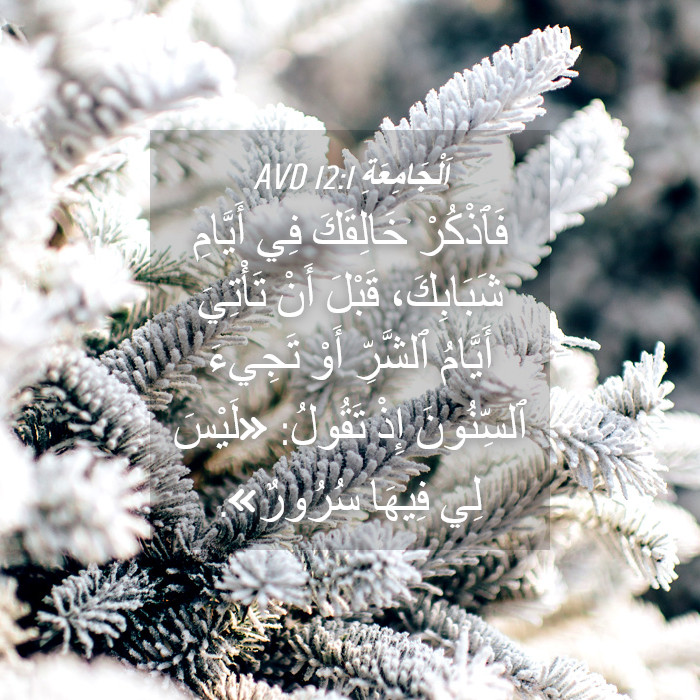 اَلْجَامِعَة 12:1 AVD
فَٱذْكُرْ خَالِقَكَ فِي أَيَّامِ
شَبَابِكَ، قَبْلَ أَنْ تَأْتِيَ
أَيَّامُ ٱلشَّرِّ أَوْ تَجِيءَ
ٱلسِّنُونَ إِذْ تَقُولُ: «لَيْسَ
لِي فِيهَا سُرُورٌ».